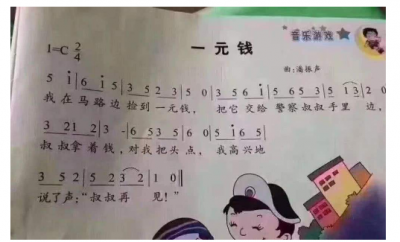 音乐游戏
1=C 2/4
一元钱
曲:潘振声
5 i | 6 i 5 | 3 5 2 3 | 5 0 | 3 5 6 i | 5 6 5 3 | 5 1 3 | 2 0
我在马路边捡到一元钱, 把它交给警察叔叔手里边,
3 2 1 2 | 3 - | 6 5 3 5 | 6 0 | 5 i 6 5 |
叔叔拿着钱,对我把头点,我高兴地
3 5 2 | 5 2 3 2 | 1 0 ‖
说了声:“叔叔再见!”